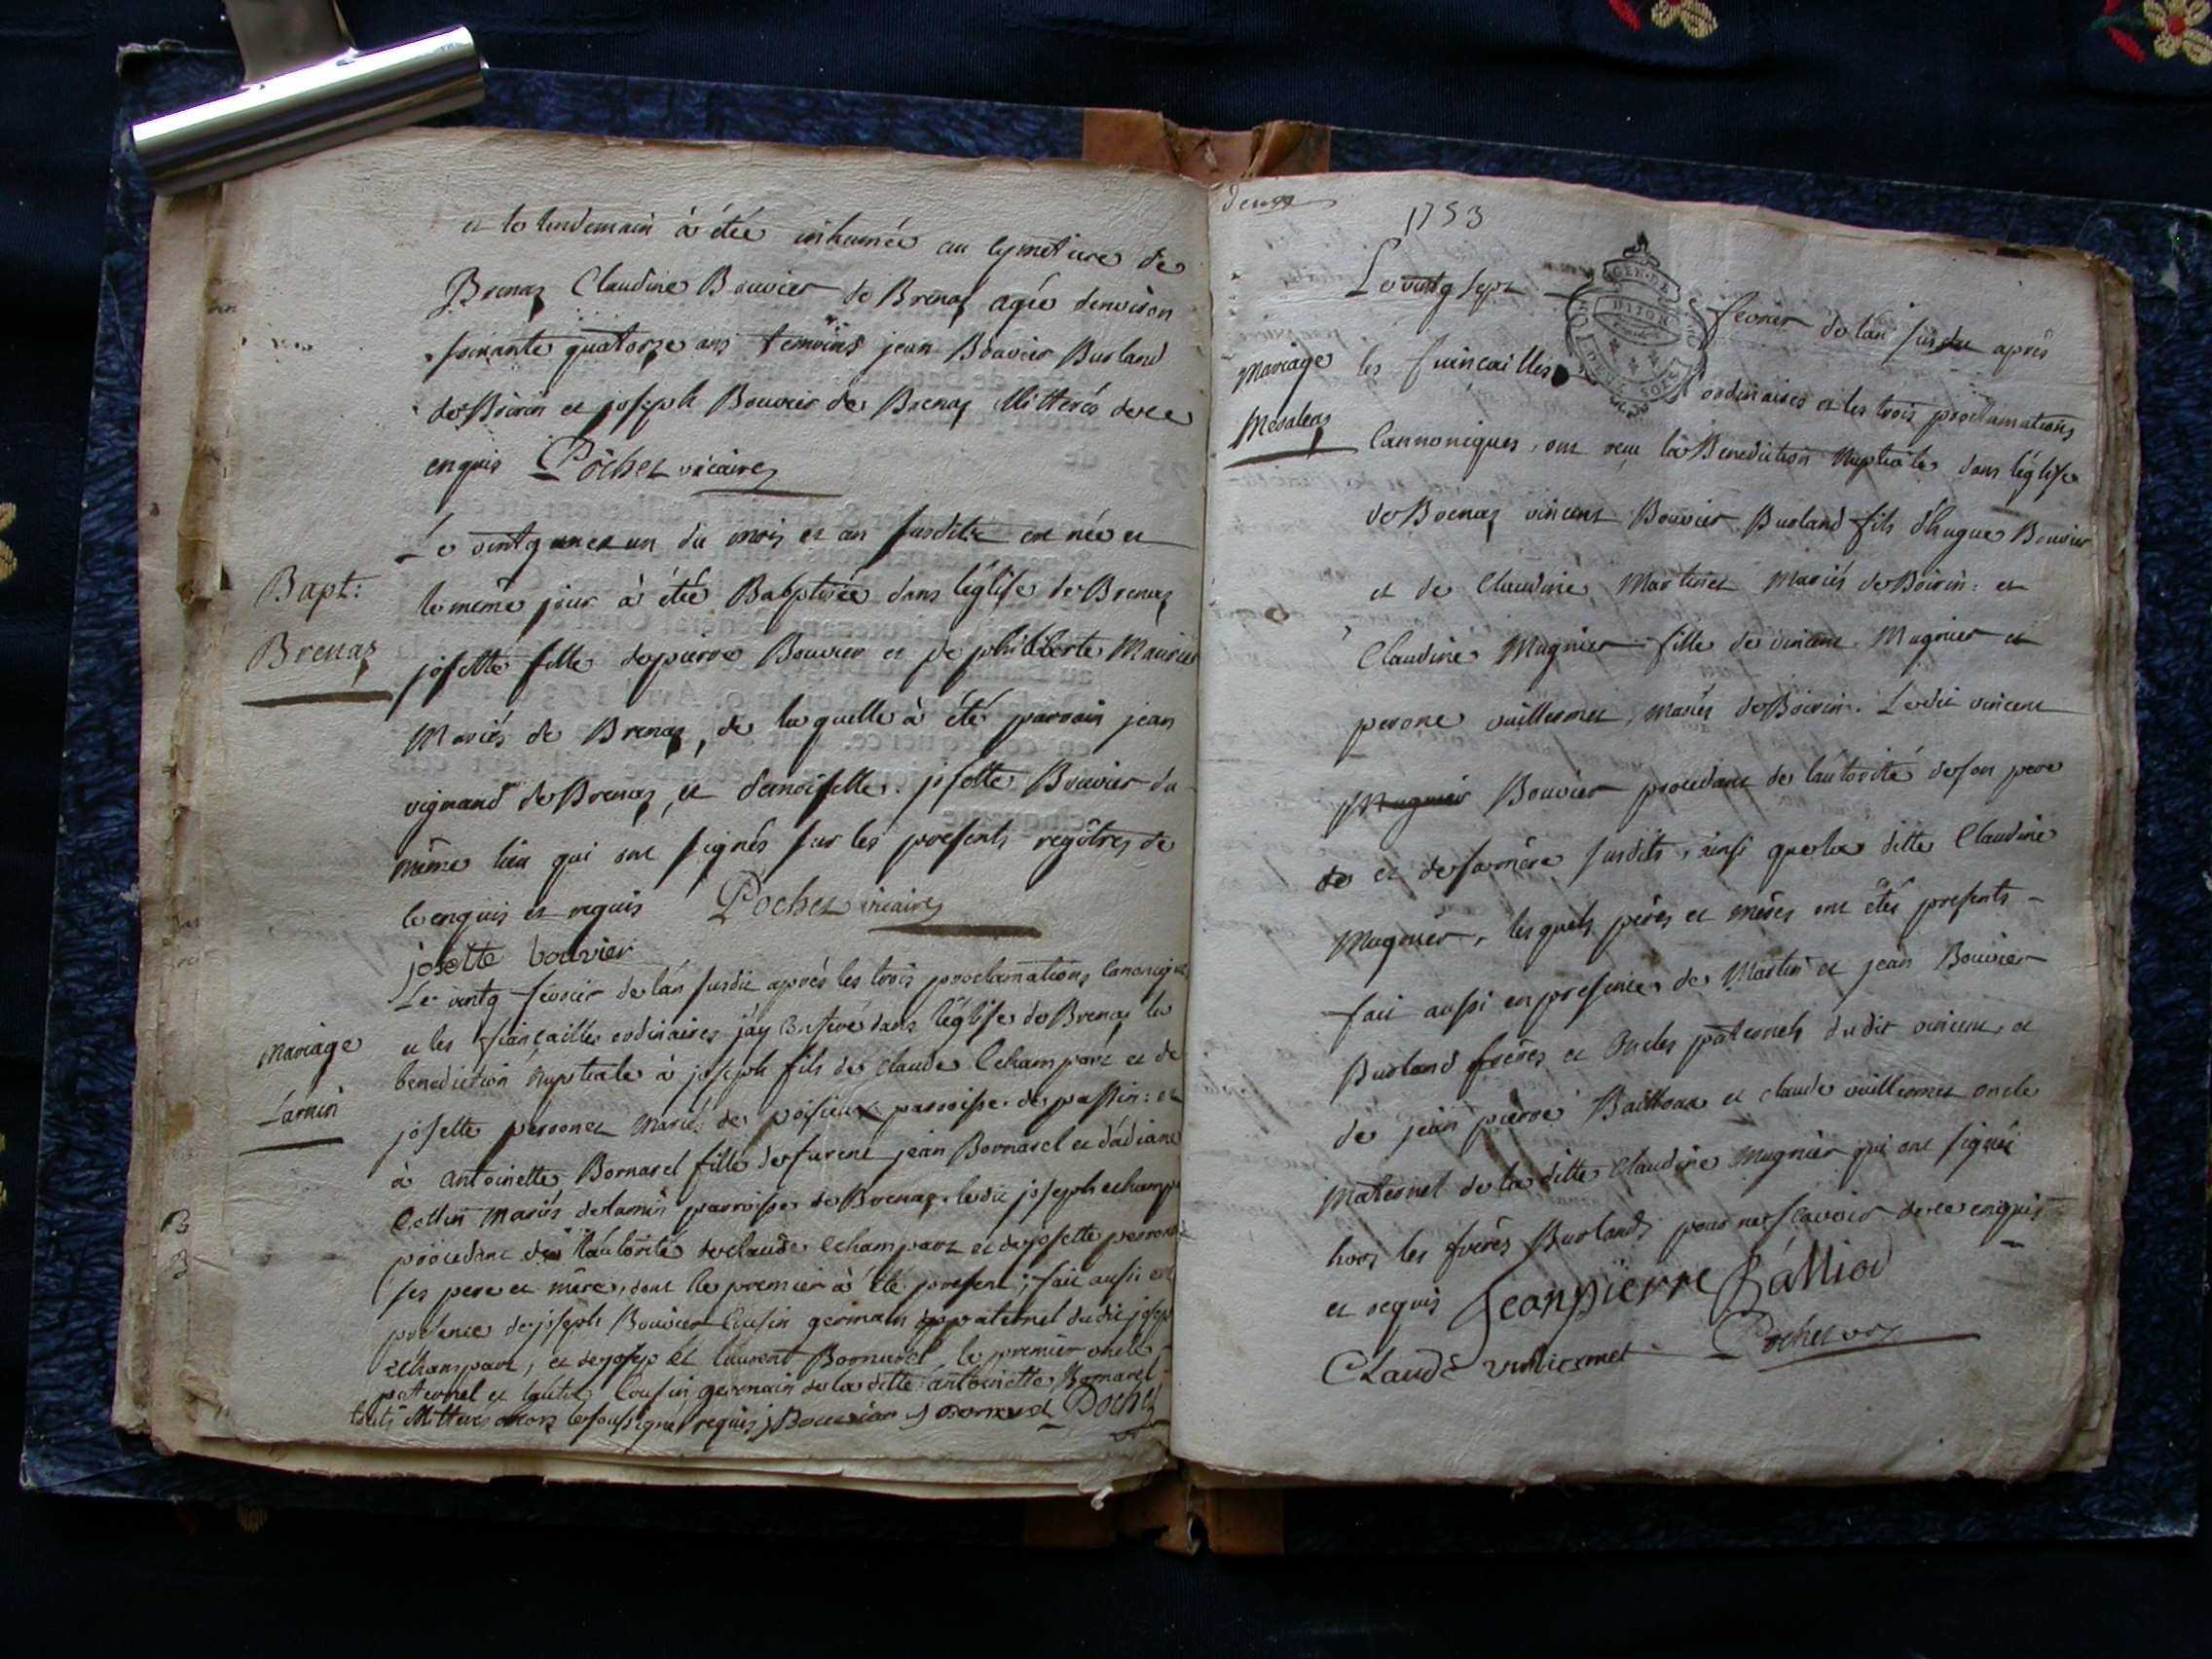 et le lendemain à étée inhumée au cymetiere de
Brenaz Claudine Bouvier de Brenaz agée denviron
soixante quatorze ans temoins jean Bouvier Burland
de Boirin et joseph Bouvier de Brenaz illitterés de ce
enquis Pochet vicaire
Le vintq un du mois et an susdits est née et
le même jour à étée Babptisée dans léglise de Brenaz
josette fille de pierre Bouvier et de philiberte Maurier
Bapt:
Brenaz
Mariés de Brenaz, de la quelle à été parrain jean
vignand de Brenaz, et demoiselle josette Bouvier du
même lieu qui ont signés sur les presents regîtres de
ce enquis et requis Pochet vicaire
josette bouvier
Le vintq fevrier de lán susdit aprés les trois proclamations canonique
Mariage
Lamin
et les fiançailles ordinaires j'ay conferé dans léglise de Brenaz la
benediction nuptiale à joseph fils de claude Echampard et de
josette personet Mariés de poisieux parroisse de passin: et
à antoinette Bornarel fille de furent jean Bornarel et dádiane
Cottin Mariés de lamin parroisse de Brenaz. ledit joseph echamp
procedant de láutorité de claude echampard et de josette personet
ses pere et mère, dont le premier à été present; fait aussi en
presence de joseph Bouvier Cousin germain paternel dudit josep
echampard, et de joseph et laurent Bornarel le premier oncle
patternel et lautre Cousin germain de la ditte antoinette Bornarel
touts illitterés hors le soussigné requis j Bouvier j Bornarel Pochet
deux
1753
Le vintq sept fevrier de lan susdit aprés
GEN. DE
DIJON
DEUX SOLS
Mariage
Mesaleas
les fiuncailles ordinaires et les trois proclamations
Cannoniques, ont reçu la Benediction Nuptiale dans léglise
de Brenaz vincent Bouvier Burland fils d'hugue Bouvier
et de Claudine Martinet Mariés de Boirin: et
Claudine Mugnier fille de vincent Mugnier et
perone vuillermet, mariés de Boirin. Ledit vincent
Mugnier Bouvier procedant de láutorité de son pere
de et de sa mère susdits, ainsi que la ditte Claudine
Mugnier, les quels péres et méres ont étés presents -
fait aussi en presence de Martin et jean Bouvier
Burland frères et Oncles paternels dudit vincent, et
de jean pierre Bailliod et claude vuillermet oncle
Maternel de la ditte Claudine Mugnier qui ont signés
hors les fréres Burlands pour ne sçavoir de ce enquis
et requis Jeanpierre Balliod
Claude vuliermet Pochet vre